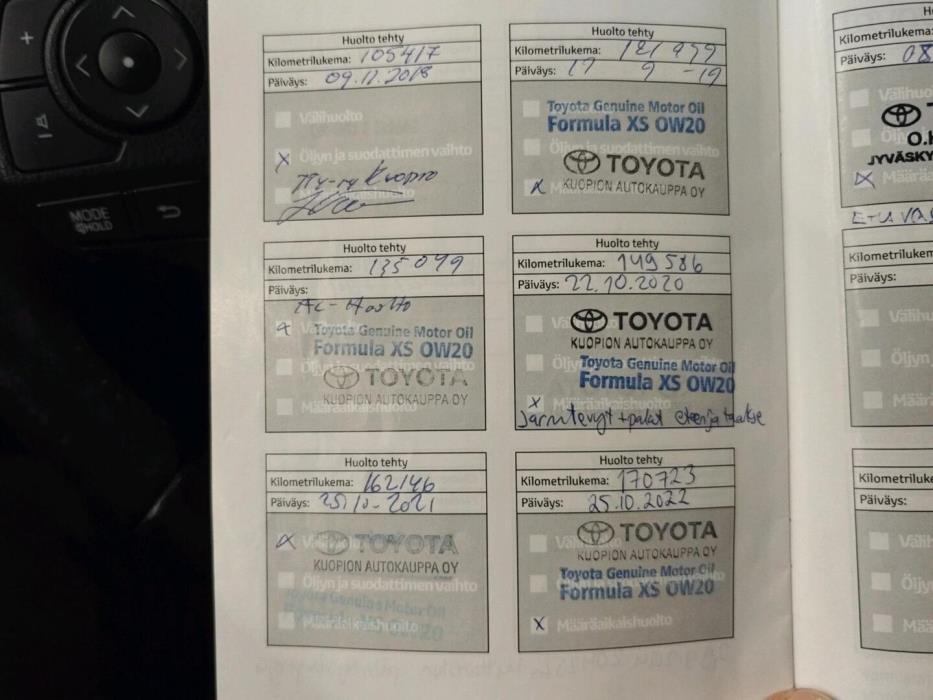 MODE
HOLD
Huolto tehty
Kilometrilukema: 105417
Päiväys: 09.11.2018
Välihuolto
X Öljyn ja suodattimen vaihto
Kuopio
Huolto tehty
Kilometrilukema: 121 979
Päiväys: 17 9 -19
Toyota Genuine Motor Oil
Formula XS 0W20
Öljyn ja suodattimen vaihto
TOYOTA
X KUOPION AUTOKAUPPA OY
Huolto tehty
Kilometrilukema: 135099
Päiväys:
AC-Huolto
X Toyota Genuine Motor Oil
Formula XS 0W20
Öljyn ja suodattimen vaihto
TOYOTA
KUOPION AUTOKAUPPA OY
Määräaikaishuolto
Huolto tehty
Kilometrilukema: 149586
Päiväys: 22.10.2020
TOYOTA
KUOPION AUTOKAUPPA OY
Toyota Genuine Motor Oil
Formula XS 0W20
X Määräaikaishuolto
Jarrulevyt + palat eteen ja taakse
Huolto tehty
Kilometrilukema: 162146
Päiväys: 25.10-2021
X TOYOTA
KUOPION AUTOKAUPPA OY
Öljyn ja suodattimen vaihto
Toyota Genuine Motor Oil
Määräaikaishuolto
Huolto tehty
Kilometrilukema: 170723
Päiväys: 25.10.2022
TOYOTA
KUOPION AUTOKAUPPA OY
Toyota Genuine Motor Oil
Formula XS 0W20
X Määräaikaishuolto
Kilometrilukema:
Päiväys: 08
Välihuo
Öljyn
O.K
JYVÄSKY
X Määräa
ETU VAS
Kilometrilukem
Päiväys:
Välihu
Öljyn
Määrä
Kilometriluke
Päiväys:
Välih
Öljy
Mää